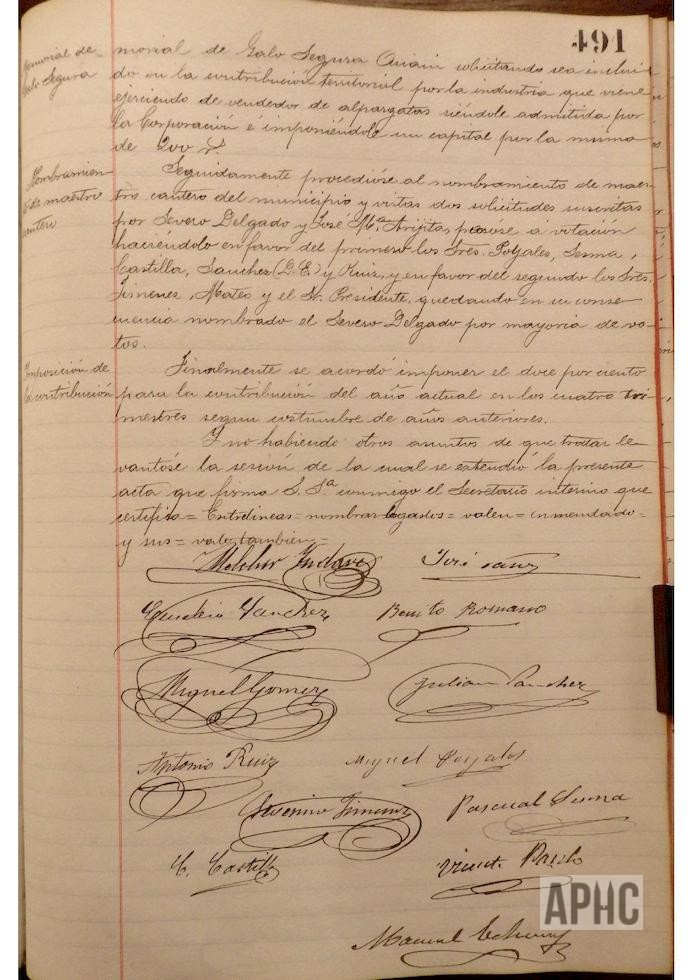 491
morial de Galo Segura solicitando sea inclui
do en la contribución territorial por la industria que viene
ejerciendo de vendedor de alpargatas siéndole admitida por
la Corporación é imponiéndole un capital por la misma
de 200
Memorial de
Galo Segura
Seguidamente procedióse al nombramiento de maes-
tro cantero del municipio y vistas dos solicitudes suscritas
por Severo Delgado y José Mª Arijita, pasóse á votación
haciéndolo en favor del primero los Sres. Poyales, Serna,
Castilla, Sanchez (D. E) y Ruiz, y en favor del segundo los Sres.
Jimenez, Mateo y el Sr. Presidente, quedando en su conse
cuencia nombrado el Severo Delgado por mayoria de vo-
tos.
Nombramien-
to de maestro
cantero
Finalmente se acordó imponer el doce por ciento
para la contribución del año actual en los cuatro tri-
mestres segun costumbre de años anteriores.
Imposición de
la contribución
Y no habiendo otros asuntos de que tratar le-
vantóse la sesión de la cual se extendió la presente
acta que firma S. Sª. conmigo el Secretario interino que
certifico = Entrelineas = nombrar = gastos = valen = enmendado =
y sus = vale tambien =
Melchor
José Sanz
Eusebio Sanchez
Benito Romano
Miguel Gomez
Julian Sanchez
Antonio Ruiz
Miguel Poyales
Severino Jimenez
Pascual Serna
C. Castilla
Vicente
Manuel
APHC